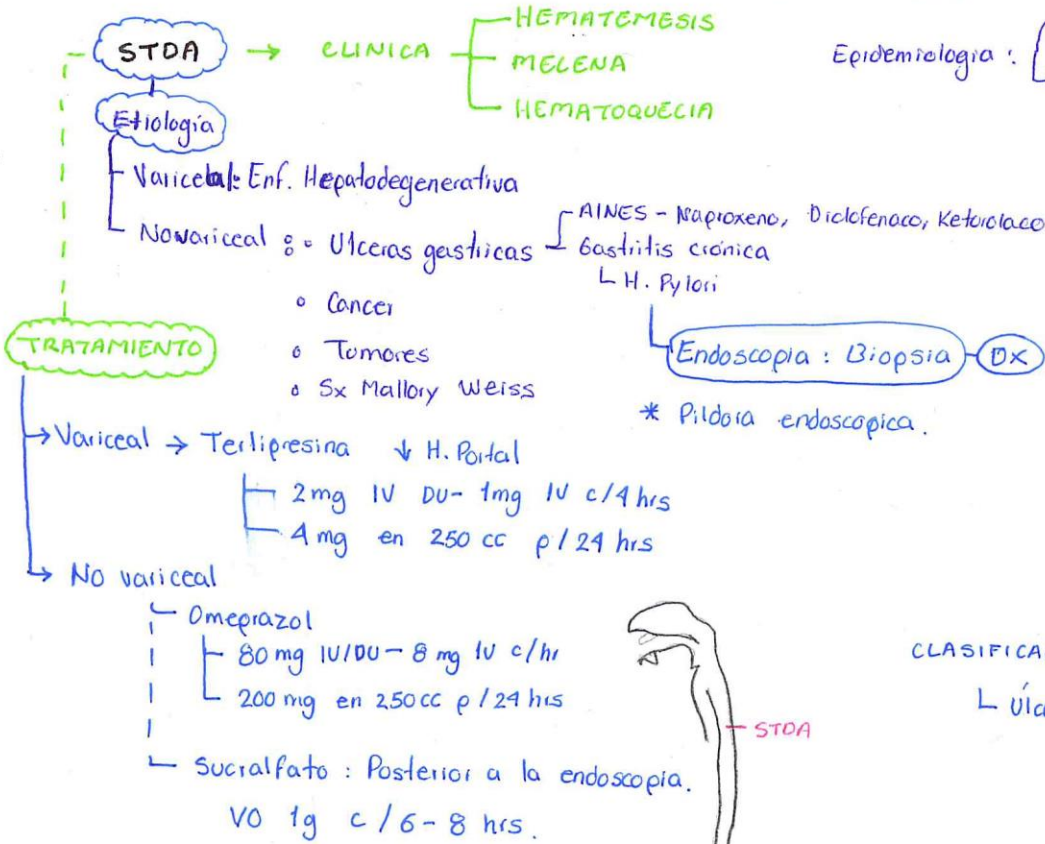 STDA → CLINICA
HEMATEMESIS
MELENA
HEMATOQUECIA
Epidemiologia :
Etiología
Variceal: Enf. Hepatodegenerativa
No variceal : ∘ Ulceras gastricas
AINES - Naproxeno, Diclofenaco, Ketorolaco
Gastritis crónica
H. Pylori
∘ Cancer
∘ Tumores
∘ Sx Mallory Weiss
Endoscopia : Biopsia
DX
* Pildora endoscopica.
TRATAMIENTO
→ Variceal → Terlipresina ↓ H. Portal
2mg IV DU - 1mg IV c/4 hrs
4mg en 250 cc p/24 hrs
→ No variceal
Omeprazol
80 mg IV/DU - 8 mg IV c/hr
200 mg en 250cc p/24 hrs
Sucralfato : Posterior a la endoscopia.
VO 1g c/6-8 hrs.
STDA
CLASIFICA